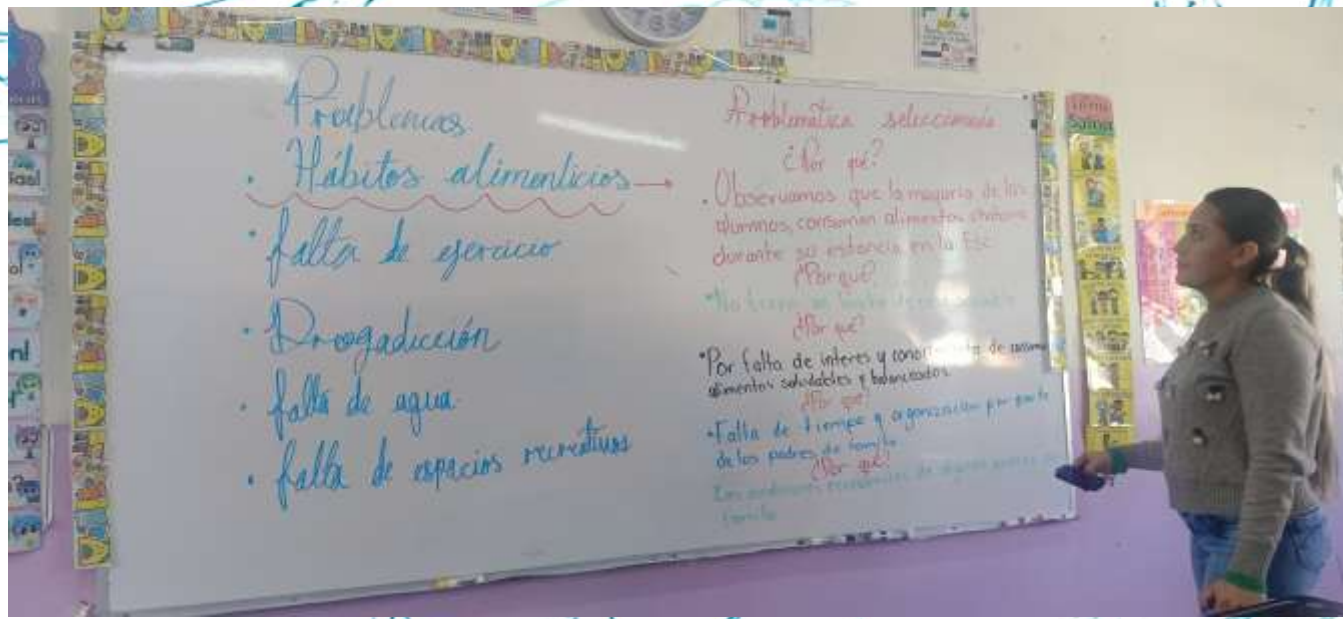 Problemas
. Hábitos alimenticios →
. falta de ejercicio
. Drogadicción
. falta de agua
. falta de espacios recreativos
Problemática seleccionada
¿Por qué?
. Observamos que la mayoria de los
alumnos, consumen alimentos chatarra
durante su estancia en la Esc.
¿Por qué?
• No tienen
¿Por qué?
• Por falta de interes y conocimiento de consumir
alimentos saludables y balanceados.
¿Por qué?
• Falta de tiempo y organización por parte
de los padres de familia
¿Por qué?
de algunos padres de
familia